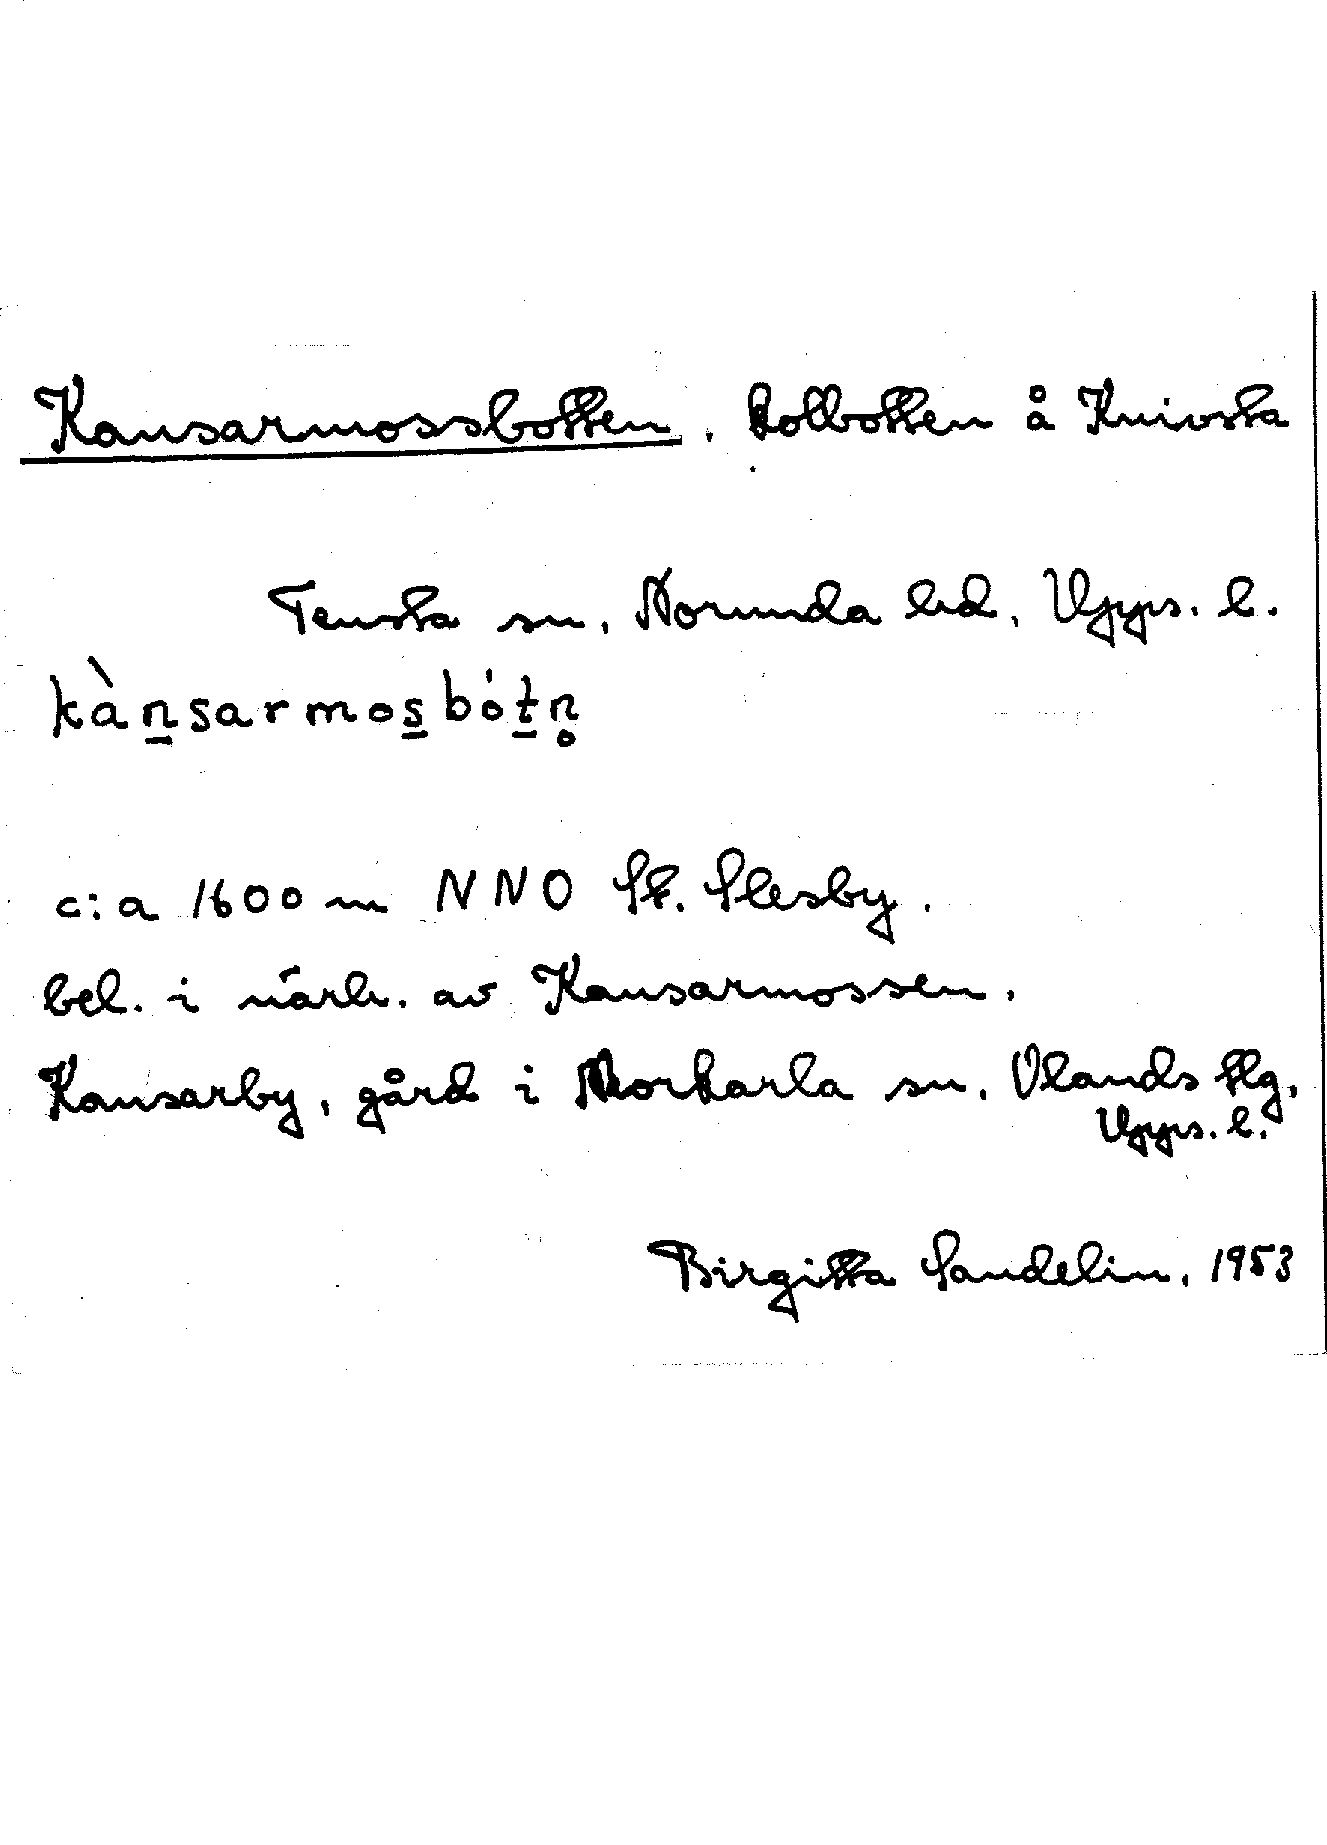 Kansarmossbotten, kolbotten å Knivsta
Tensta sn, Norunda hd, Upps. l.
kàn̲sarmos̲bót̲n̥
c:a 1600 m NNO St. Slesby.
bel. i närh. av Kansarmossen.
Kansarby, gård i Morkarla sn, Olands tlg,
Upps. l.
Birgitta Sandelin, 1953